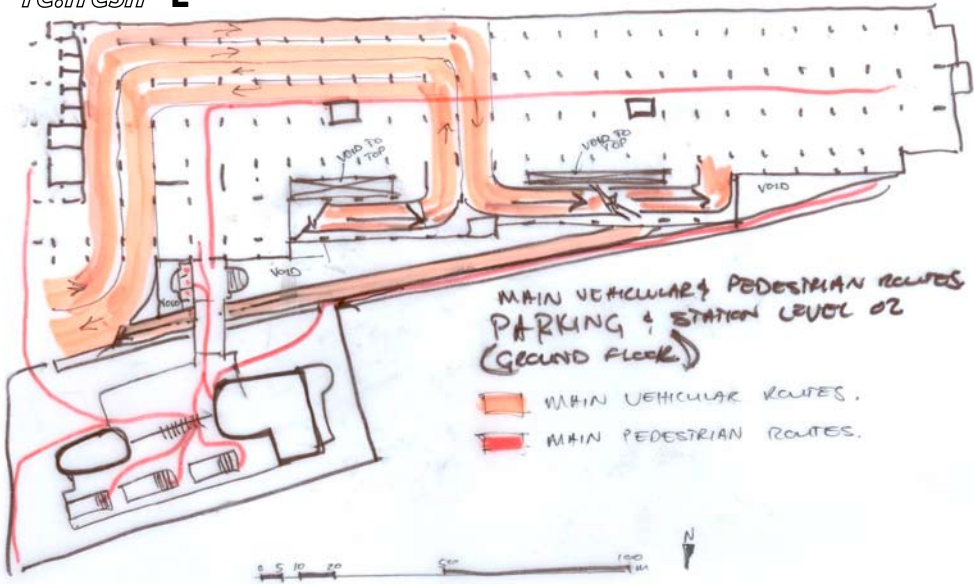 re:fresh E
VOID TO
TOP
VOID TO
TOP
VOID
VOID
VOID
MAIN VEHICULAR & PEDESTRIAN ROUTES
PARKING & STATION LEVEL 02
(GROUND FLOOR)
MAIN VEHICULAR ROUTES.
MAIN PEDESTRIAN ROUTES.
N
0 5 10 20 50 100
m